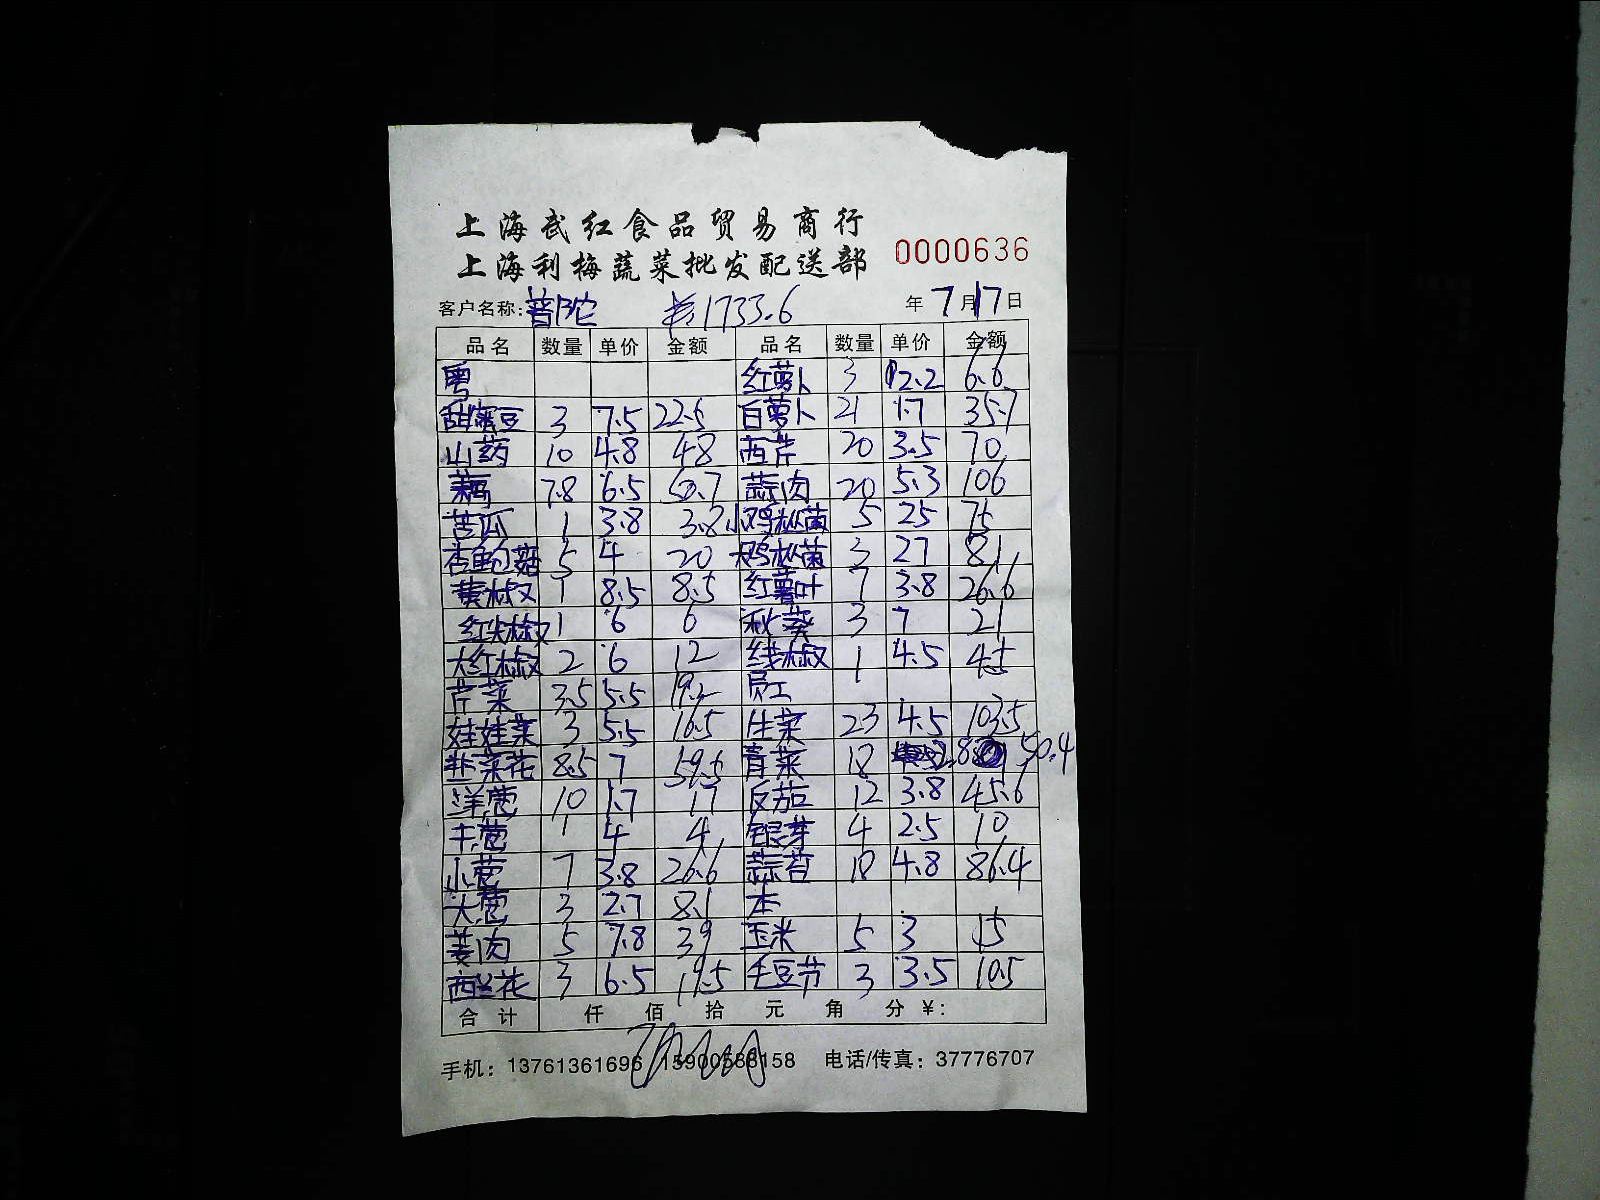 上海武红食品贸易商行
上海利梅蔬菜批发配送部 0000636
客户名称:普陀 ¥1733.6 年7月17日
品名 数量 单价 金额 品名 数量 单价 金额
粤 红萝卜 3 2.2 6.6
甜蜜豆 3 7.5 22.5 白萝卜 21 1.7 35.7
山药 10 4.8 48 西芹 20 3.5 70
藕 7.8 6.5 50.7 蒜肉 20 5.3 106
苦瓜 1 3.8 3.8 小鸡枞菌 5 25 75
杏鲍菇 5 4 20 大鸡枞菌 3 27 81
黄椒 1 8.5 8.5 红薯叶 7 3.8 26.6
红尖椒 1 6 6 秋葵 3 7 21
大红椒 2 6 12 线椒 1 4.5 4.5
芹菜 3.5 5.5 19.2 员工
娃娃菜 3 5.5 16.5 生菜 23 4.5 103.5
韭菜花 8.5 7 59.5 青菜 18 2.8 50.4
洋葱 10 1.7 17 反茄 12 3.8 45.6
干葱 1 4 4 银芽 4 2.5 10
小葱 7 3.8 26.6 蒜苔 18 4.8 86.4
大葱 3 2.7 8.1 本
姜肉 5 7.8 39 玉米 5 3 15
西兰花 3 6.5 19.5 毛豆节 3 3.5 10.5
合计 仟 佰 拾 元 角 分 ¥:
手机: 13761361696 15900588158 电话/传真: 37776707